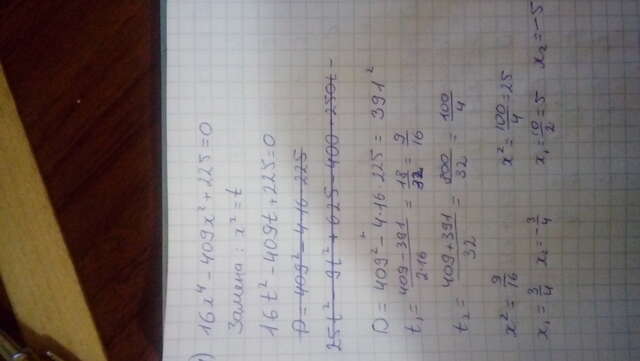 ) 16x⁴ - 409x² + 225 = 0
Замена: x² = t
16t² - 409t + 225 = 0
D = 409² - 4·16·225
25t² - 9t² + 625 - 400 · 250t -
D = 409² - 4·16·225 = 391²
t₁ = (409-391)/(2·16) = 18/32 = 9/16
t₂ = (409+391)/32 = 800/32 = 100/4
x² = 9/16 x² = 100/4 = 25
x₁ = 3/4 x₂ = -3/4 x₁ = 10/2 = 5 x₂ = -5